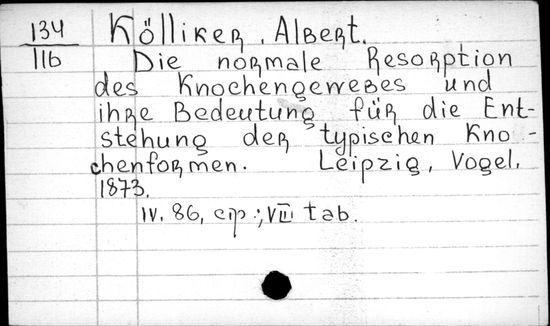 134 Kölliker, Albert.
116 Die normale Resorption
des Knochengewebes und
ihre Bedeutung für die Ent-
stehung der typischen Kno-
chenformen. Leipzig, Vogel,
1873.
IV. 86, стр.; VIII tab.